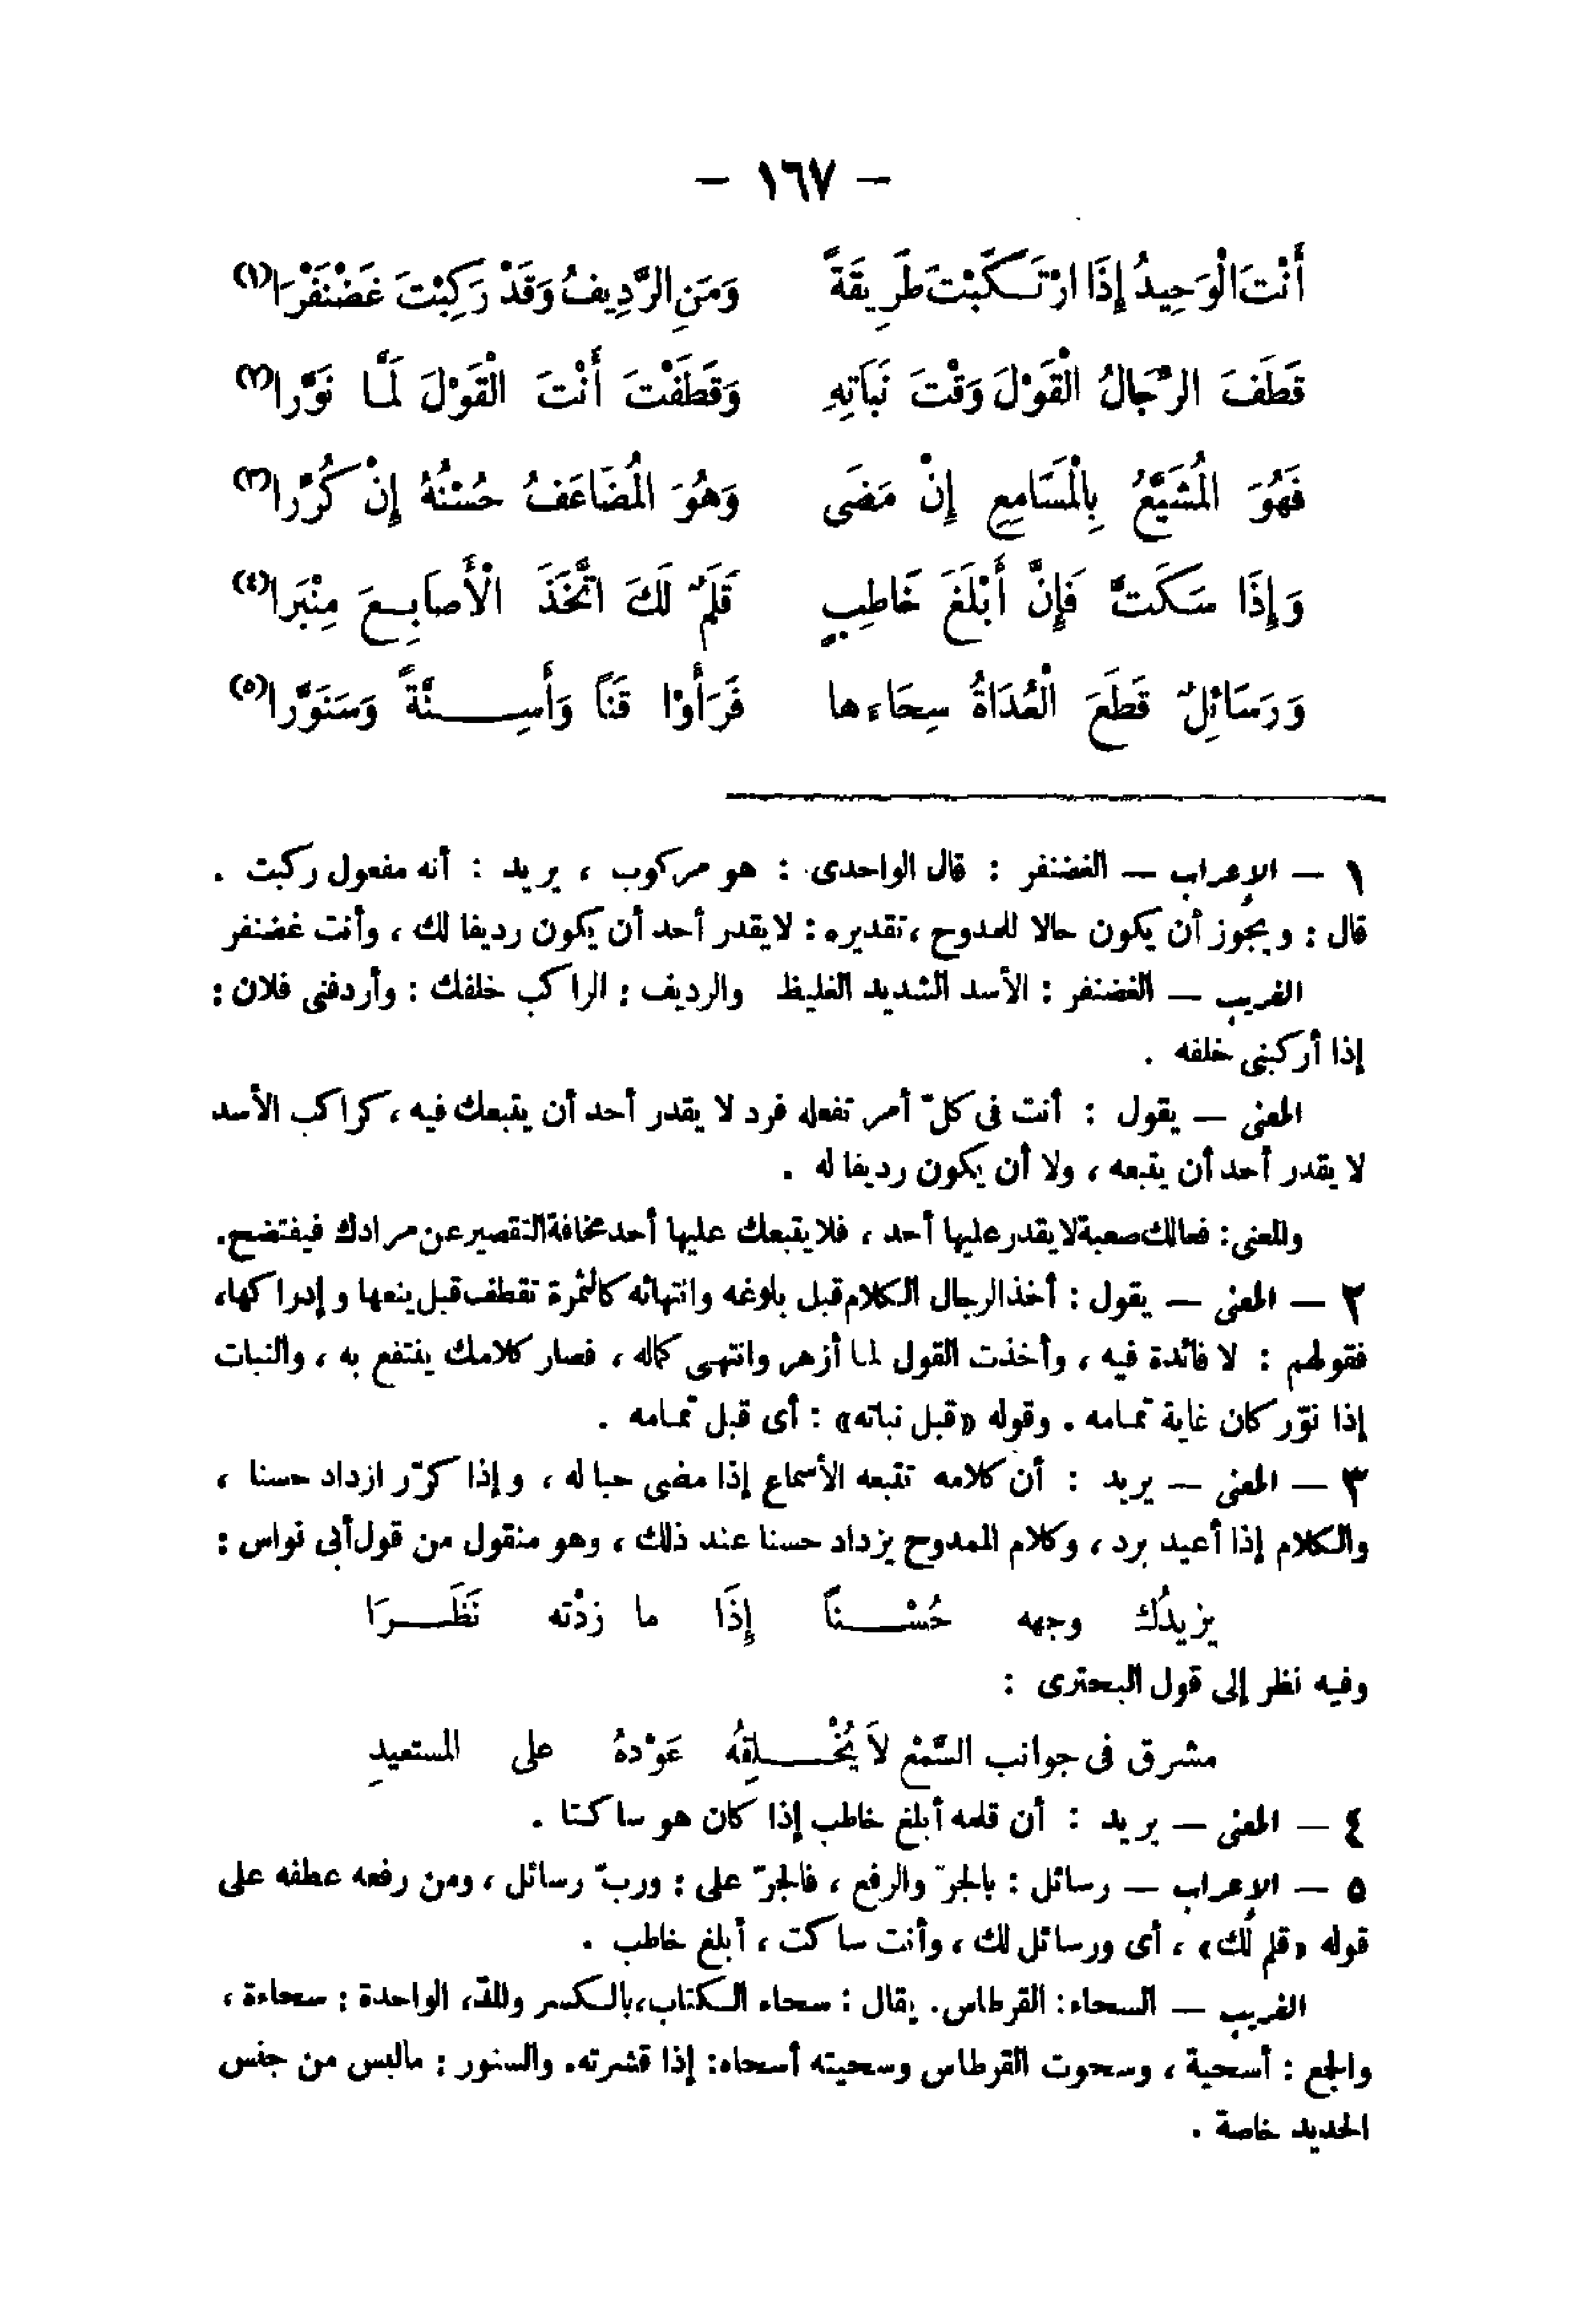 — ١٦٧ —
أَنْتَ الْوَحِيدُ إِذَا ارْتَكَبْتَ طَرِيقَةً وَمَنِ الرَّدِيفُ وَقَدْ رَكِبْتَ غَضَنْفَرَا(١)
قَطَفَ الرِّجَالُ الْقَوْلَ وَقْتَ نَبَاتِهِ وَقَطَفْتَ أَنْتَ الْقَوْلَ لَمَّا نَوَّرَا(٢)
فَهُوَ الْمُشَيَّعُ بِالْمَسَامِعِ إِنْ مَضَى وَهُوَ الْمُضَاعَفُ حُسْنُهُ إِنْ كُرِّرَا(٣)
وَإِذَا سَكَتَّ فَإِنَّ أَبْلَغَ خَاطِبٍ قَلَمٌ لَكَ اتَّخَذَ الْأَصَابِعَ مِنْبَرَا(٤)
وَرَسَائِلٌ قَطَعَ الْعُدَاةُ سِحَاءها فَرَأَوْا قَنًا وَأَسِنَّةً وَسَنَوَّرَا(٥)
١ — الإعراب — الغضنفر : قال الواحدى : هو مركوب ، يريد : أنه مفعول ركبت .
قال : ويجوز أن يكون حالا للمدوح ، تقديره : لا يقدر أحد أن يكون رديفا لك ، وأنت غضنفر
الغريب — الغضنفر : الأسد الشديد الغليظ والرديف : الراكب خلفك : وأردفنى فلان :
إذا أركبنى خلفه .
المعنى — يقول : أنت فى كلّ أمر تفعله فرد لا يقدر أحد أن يتبعك فيه ، كراكب الأسد
لا يقدر أحد أن يتبعه ، ولا أن يكون رديفا له .
والمعنى : فعالك صعبة لا يقدر عليها أحد ، فلا يتبعك عليها أحد مخافة التقصير عن مرادك فيفتضح .
٢ — المعنى — يقول : أخذ الرجال الكلام قبل بلوغه وانتهائه كالثمرة تقطف قبل ينعها وإدراكها ،
فقولهم : لا فائدة فيه ، وأخذت القول لما أزهر وانتهى كماله ، فصار كلامك ينتفع به ، والنبات
إذا نوّر كان غاية تمامه . وقوله «قبل نباته» : أى قبل تمامه .
٣ — المعنى — يريد : أن كلامه تتبعه الأسماع إذا مضى حبا له ، وإذا كرّر ازداد حسنا ،
والكلام إذا أعيد برد ، وكلام الممدوح يزداد حسنا عند ذلك ، وهو منقول من قول أبى نواس :
يزيدُك وجهه حُسْنًا إِذَا ما زدْته نَظَرَا
وفيه نظر إلى قول البحترى :
مشرق فى جوانب السَّمْع لاَ يُخْلِقُه عَوْدهُ على المستعيدِ
٤ — المعنى — يريد : أن قلمه أبلغ خاطب إذا كان هو ساكتا .
٥ — الإعراب — رسائل : بالجرّ والرفع ، فالجرّ على : وربّ رسائل ، ومن رفعه عطفه على
قوله «قلم لك» ، أى ورسائل لك ، وأنت ساكت ، أبلغ خاطب .
الغريب — السحاء : القرطاس . يقال : سحاء الكتاب ، بالكسر والمدّ ، الواحدة : سحاءة ،
والجمع : أسحية ، وسحوت القرطاس وسحيته أسحاه : إذا قشرته . والسنور : مالبس من جنس
الحديد خاصة .